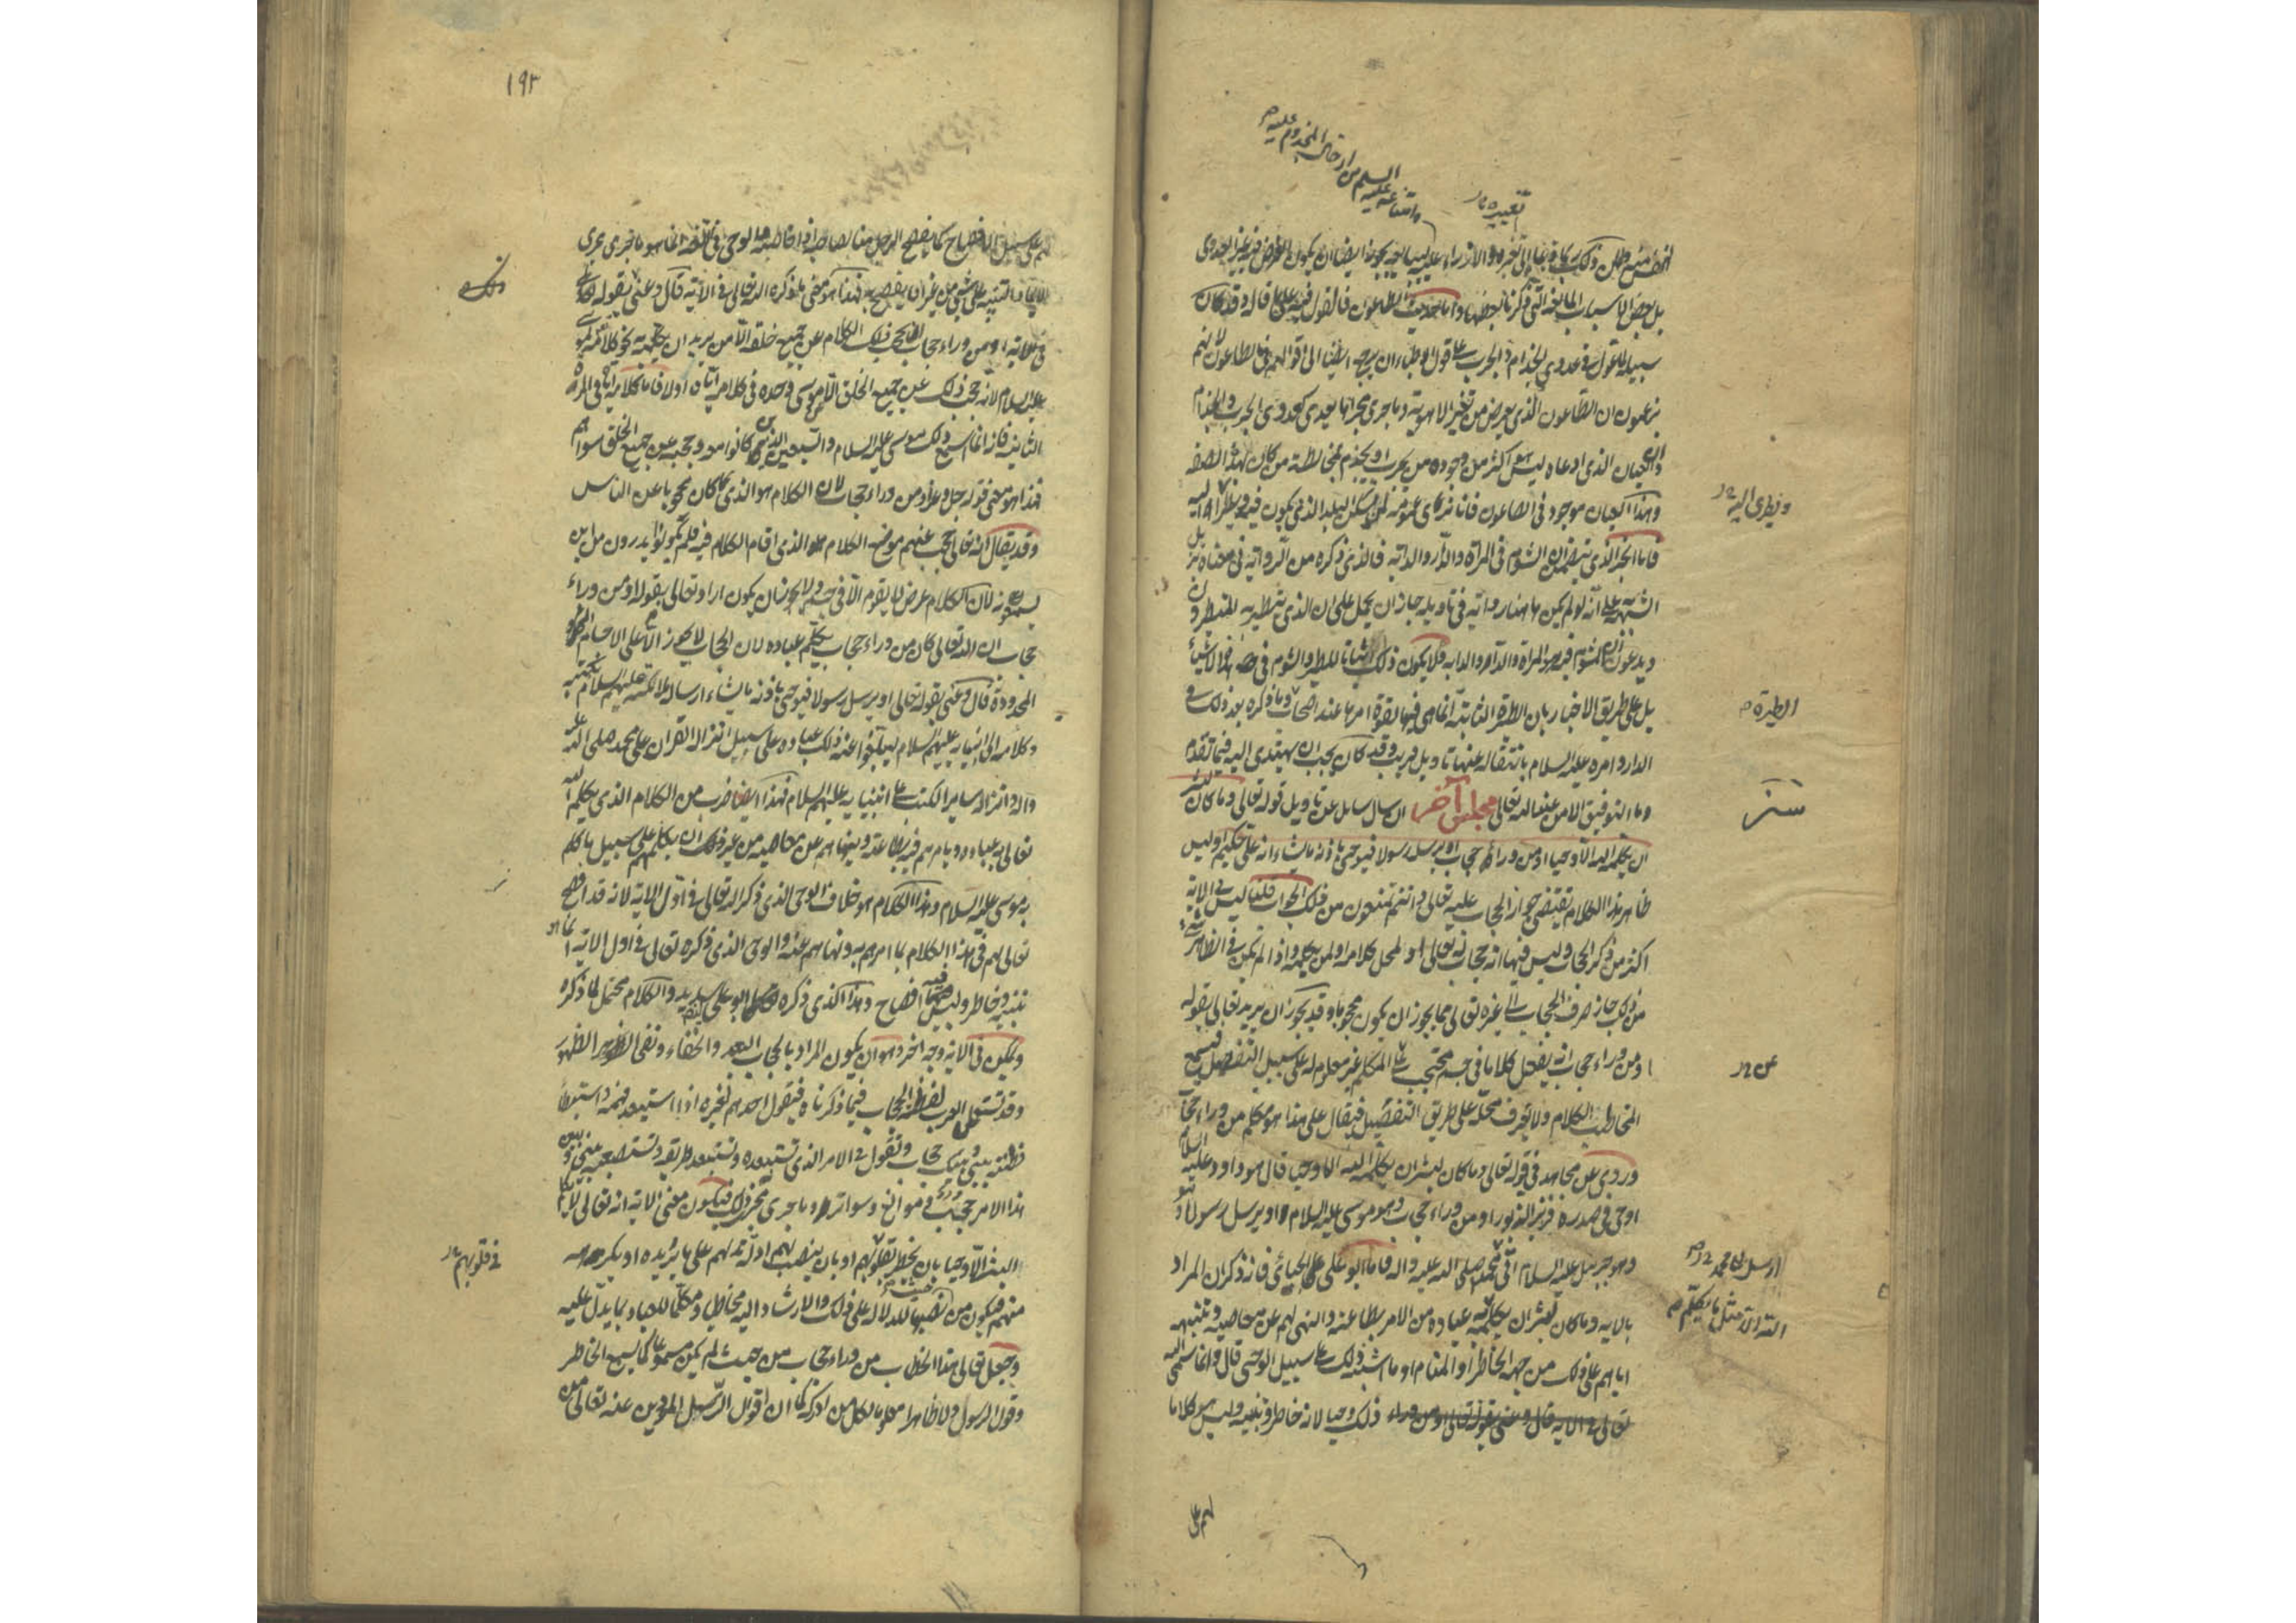 تعييره
بل بعض الأسباب المانعة التي ذكرنا بعضها وأما حديث الطاعون فالقول فيه على ما قاله وقد كان
سبيله لما عول في عدوى الجذام والجرب على قول الأطباء ان يرجع أيضا الى أقوالهم في الطاعون لأنهم
يزعمون ان الطاعون الذي يعرض من تغير الاهوية وما جرى مجراها يعدي كعدوى الجرب والجذام
والعيان الذي ادعاه ليس هو أكثر من وجوده من يجرب او يجذم لمخالطة من كان بهذه الصفة
وهذا العيان موجود في الطاعون فانا نرى عمومه لمن يسكن البلد الذي يكون فيه ويطرأ اليه
فاما الخبر الذي يتضمن ان الشوم في المرأة والدار والدابة فالذي ذكره من الرواية في معناه يزيل
الشبهة على انه لو لم يكن هاهنا رواية في تأويله جاز ان يحمل على ان الذي يتطير به المتطيرون
ويدعون ان الشوم فيه هو المرأة والدار والدابة فلا يكون ذلك اثباتا للطيرة والشوم في هذه الاشياء
بل على طريق الاخبار بان الطيرة الثابتة انما هي فيها لقوة امرها عند اصحابها وما ذكره بعد ذلك في
الدار وامره عليه السلام بانتقاله عنها تاويل قريب وقد كان يجب ان يهتدي اليه فيما تقدم
وما التوفيق الا من عند الله تعالى مجلس آخر ان سال سائل عن تاويل قوله تعالى وما كان لبشر
ان يكلمه الله الا وحيا او من وراء حجاب او يرسل رسولا فيوحي باذنه ما يشاء انه علي حكيم اوليس
ظاهر هذا الكلام يقتضي جواز الحجاب عليه تعالى وانتم تمنعون من ذلك الجواب قلنا ليس في الاية
اكثر من ذكر الحجاب وليس فيها انه حجاب له تعالى او لمحل كلامه او لمن يكلمه واذا لم يكن في الظاهر شيء
من ذلك جاز صرف الحجاب الى غيره تعالى مما يجوز ان يكون محجوبا وقد يجوز ان يريد تعالى بقوله
او من وراء حجاب انه يفعل كلاما في جسم محتجب على المكلم غير معلوم له على سبيل التفصيل فيسمع
المخاطب الكلام ولا يعرف محله على طريق التفصيل فيقال على هذا هو مكلم من وراء حجاب
وروي عن مجاهد في قوله تعالى وما كان لبشر ان يكلمه الله الا وحيا قال هو داود عليه السلام
اوحى في صدره فزبر الزبور او من وراء حجاب وهو موسى عليه السلام او يرسل رسولا وهو
وهو جبريل عليه السلام الى محمد صلى الله عليه واله فاما ابو علي الجبائي فانه ذكر ان المراد
بالاية وما كان لبشر ان يكلمه عباده من الامر بطاعته والنهي لهم عن معاصيه وتنبيهه
اياهم على ذلك من جهة الخاطر او المنام او ما اشبه ذلك على سبيل الوحي قال وانما سمى الله
تعالى ذلك وحيا لانه خاطر وتنبيه وليس هو كلاما
لهم على
ويطرى اليه
الطيرة
عن
ارسل الى محمد
الله الا مثل ما يكلم
١٩٣
لهم على سبيل الافصاح كما يفصح الرجل منا لصاحبه اذا خاطبه والوحي في اللغة انما هو ما جرى مجرى
الايماء والتنبيه على شيء من غير ان يفصح به فهذا هو معنى ما ذكره الله تعالى في الاية قال وعنى بقوله تعالى
او من وراء حجاب ان يحجب ذلك الكلام عن جميع خلقه الا من يريد ان يكلمه به نحو كلامه لموسى
عليه السلام لانه حجب ذلك عن جميع الخلق الا موسى وحده في كلامه اياه اولا فاما كلامه اياه في المرة
الثانية فانه انما اسمع ذلك موسى عليه السلام والسبعين الذين كانوا معه وحجبه عن جميع الخلق سواهم
فهذا هو معنى قوله جل وعز او من وراء حجاب لان الكلام هو الذي كان محجوبا عن الناس
وقد يقال انه تعالى حجب عنهم موضع الكلام الذي اقام الكلام فيه فلم يكونوا يدرون من اين
يسمعونه لان الكلام عرض لا يقوم الا في جسم ولا يجوز ان يكون اراد تعالى بقوله او من وراء
حجاب ان الله تعالى كان من وراء حجاب يكلم عباده لان الحجاب لا يجوز الا على الاجسام
المحدودة قال وعنى بقوله تعالى او يرسل رسولا فيوحي باذنه ما يشاء ارساله ملائكته عليهم السلام بكتبه
وكلامه الى انبيائه عليهم السلام ليبلغوا عنه ذلك عباده على سبيل انزاله القران على محمد صلى الله عليه
واله وانزاله سائر الكتب على انبيائه عليهم السلام فهذا ايضا ضرب من الكلام الذي يكلم الله
تعالى به عباده ويامرهم فيه بطاعته وينهاهم عن معاصيه من غير ان يكلمهم على سبيل ما كلم
به موسى عليه السلام وهذا الكلام هو خلاف الوحي الذي ذكر الله تعالى في اول الاية لانه قد افصح
تعالى لهم في هذا الكلام بما امرهم به ونهاهم عنه والوحي الذي ذكره تعالى في اول الاية انما هو
تنبيه وخاطر وليس فيه افصاح وهذا الذي ذكره ابو علي سديد والكلام محتمل لما ذكره
ويمكن في الاية وجه اخر وهو ان يكون المراد بالحجاب البعد والخفاء ونفي الظهور
وقد تستعمل العرب لفظة الحجاب فيما ذكرناه فيقول احدهم لغيره اذا استبعد فهمه واستبطأ
فطنته بيني وبينك حجاب وتقول في الامر الذي تستبعده وتستصعب طريقه بيني وبين
هذا الامر حجب وموانع وسواتر وما جرى مجرى ذلك فيكون معنى الاية انه تعالى لا يكلم
البشر الا وحيا بان يخطر بقلوبهم او بان ينصب لهم ادلة تدلهم على ما يريده او يكرهه
منهم فيكون من حيث نصبها للدلالة على ذلك والارشاد اليه مخاطبا ومكلما للعباد بما يدل عليه
وجعل تعالى هذا الخطاب من وراء حجاب من حيث لم يكن مسموعا كما يسمع الخاطر
وقول الرسول ولا ظاهرا معلوما لكل من ادركه كما ان اقوال الرسل المؤدين عنه تعالى من
في قلوبهم